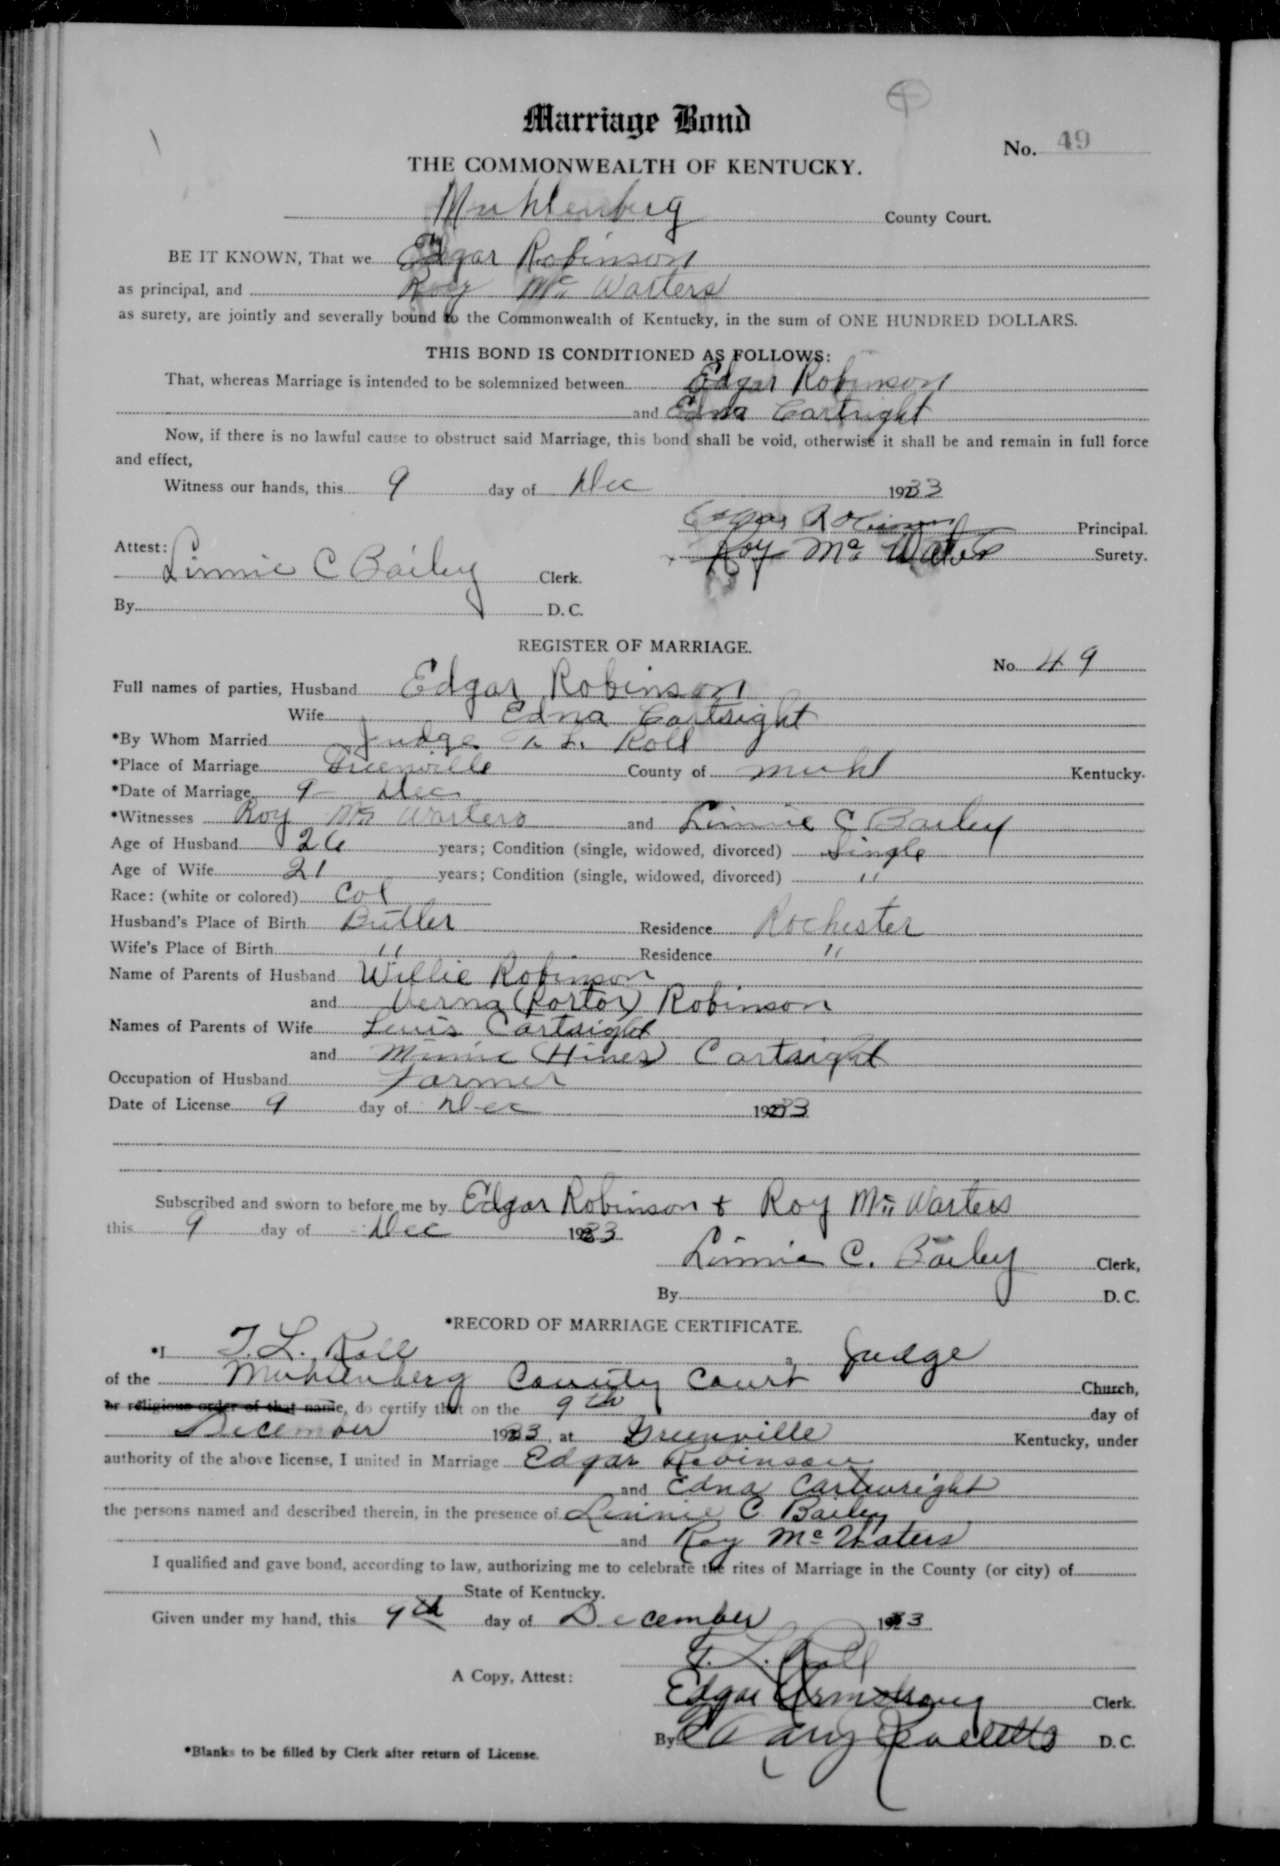 Marriage Bond
No. 49
THE COMMONWEALTH OF KENTUCKY.
Muhlenberg County Court.
BE IT KNOWN, That we Edgar Robinson
as principal, and Roy Mc Warters
as surety, are jointly and severally bound to the Commonwealth of Kentucky, in the sum of ONE HUNDRED DOLLARS.
THIS BOND IS CONDITIONED AS FOLLOWS:
That, whereas Marriage is intended to be solemnized between Edgar Robinson
and Edna Cartright
Now, if there is no lawful cause to obstruct said Marriage, this bond shall be void, otherwise it shall be and remain in full force
and effect,
Witness our hands, this 9 day of Dec 1933
Edgar Robinson Principal.
Roy Mc Waters Surety.
Attest: Linnie C Bailey Clerk.
By D. C.
REGISTER OF MARRIAGE.
No. 49
Full names of parties, Husband Edgar Robinson
Wife Edna Cartright
*By Whom Married Judge T. L. Roll
*Place of Marriage Greenville County of Muhl Kentucky.
*Date of Marriage 9- Dec.
*Witnesses Roy Mc Warters and Linnie C Bailey
Age of Husband 26 years; Condition (single, widowed, divorced) Single
Age of Wife 21 years; Condition (single, widowed, divorced) "
Race: (white or colored) Col
Husband's Place of Birth Butler Residence Rochester
Wife's Place of Birth " Residence "
Name of Parents of Husband Willie Robinson
and Verna (Portor) Robinson
Names of Parents of Wife Lewis Cartright
and Minnie (Hines) Cartright
Occupation of Husband Farmer
Date of License 9 day of Dec 1933
Subscribed and sworn to before me by Edgar Robinson + Roy Mc Warters
this 9 day of Dec 1933
Linnie C. Bailey Clerk,
By D. C.
*RECORD OF MARRIAGE CERTIFICATE.
*I T. L. Roll, a Judge
of the Muhlenberg County Court Church,
or religious order of that name, do certify that on the 9th day of
December 1933, at Greenville Kentucky, under
authority of the above license, I united in Marriage Edgar Robinson
and Edna Cartwright
the persons named and described therein, in the presence of Linnie C. Bailey
and Roy Mc Waters
I qualified and gave bond, according to law, authorizing me to celebrate the rites of Marriage in the County (or city) of
State of Kentucky.
Given under my hand, this 9th day of December 1933
T. L. Roll
A Copy, Attest:
Edgar Armstrong Clerk.
By Mary D. C.
*Blanks to be filled by Clerk after return of License.